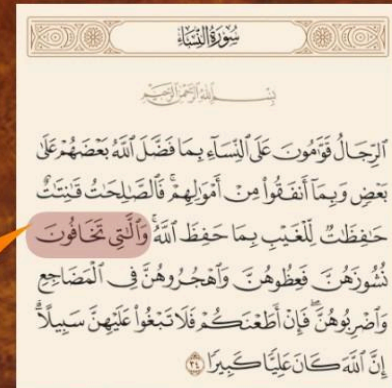 سُورَةُ النِّسَاءِ
بِسْمِ اللَّهِ الرَّحْمَٰنِ الرَّحِيمِ
ٱلرِّجَالُ قَوَّٰمُونَ عَلَى ٱلنِّسَآءِ بِمَا فَضَّلَ ٱللَّهُ بَعۡضَهُمۡ عَلَىٰ
بَعۡضٖ وَبِمَآ أَنفَقُواْ مِنۡ أَمۡوَٰلِهِمۡۚ فَٱلصَّٰلِحَٰتُ قَٰنِتَٰتٌ
حَٰفِظَٰتٞ لِّلۡغَيۡبِ بِمَا حَفِظَ ٱللَّهُۚ وَٱلَّٰتِي تَخَافُونَ
نُشُوزَهُنَّ فَعِظُوهُنَّ وَٱهۡجُرُوهُنَّ فِي ٱلۡمَضَاجِعِ
وَٱضۡرِبُوهُنَّۖ فَإِنۡ أَطَعۡنَكُمۡ فَلَا تَبۡغُواْ عَلَيۡهِنَّ سَبِيلًاۗ
إِنَّ ٱللَّهَ كَانَ عَلِيّٗا كَبِيرٗا ٣٤